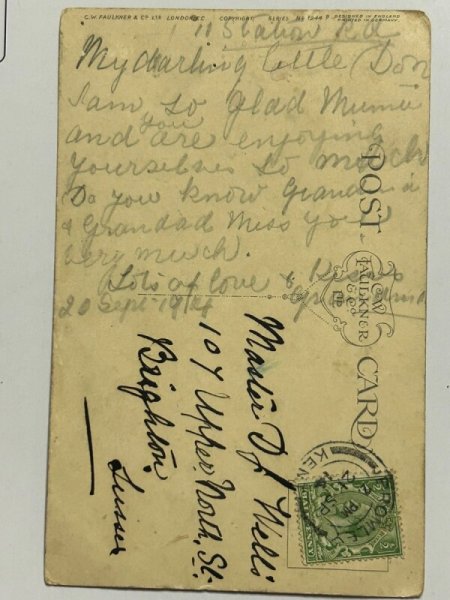 C.W. FAULKNER & CO. LTD. LONDON. E.C. COPYRIGHT. SERIES No 1244 DESIGNED IN ENGLAND
PRINTED IN GERMANY.
11 Station Rd
My darling little Don
I am so glad Mumie
and you are enjoying
yourselves so much
Do you know Grandma
& Grandad Miss you
very much.
Lots of love & Kisses
20 Sept 1914 Grandma
POST CARD
C.W. FAULKNER & CO. LTD.
Master D J Wells
107 Upper North St.
Brighton
Sussex
BROMLEY
KENT
PM